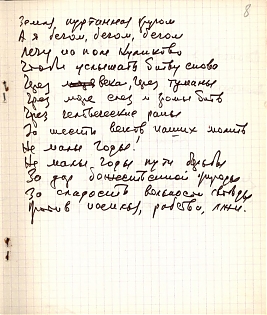 8
Земля, курганная кругом
А я бегом, бегом, бегом
Лечу на поле Куликово
Чтобы услышать битву снова
Через века, через туманы
Через море слез и
Через человеческие раны
За шесть веков наших
Не малые годы!
Не малы годы пути борьбы
За дар божественной природы
За сладость вольности
Против насилья, рабства, лжи.